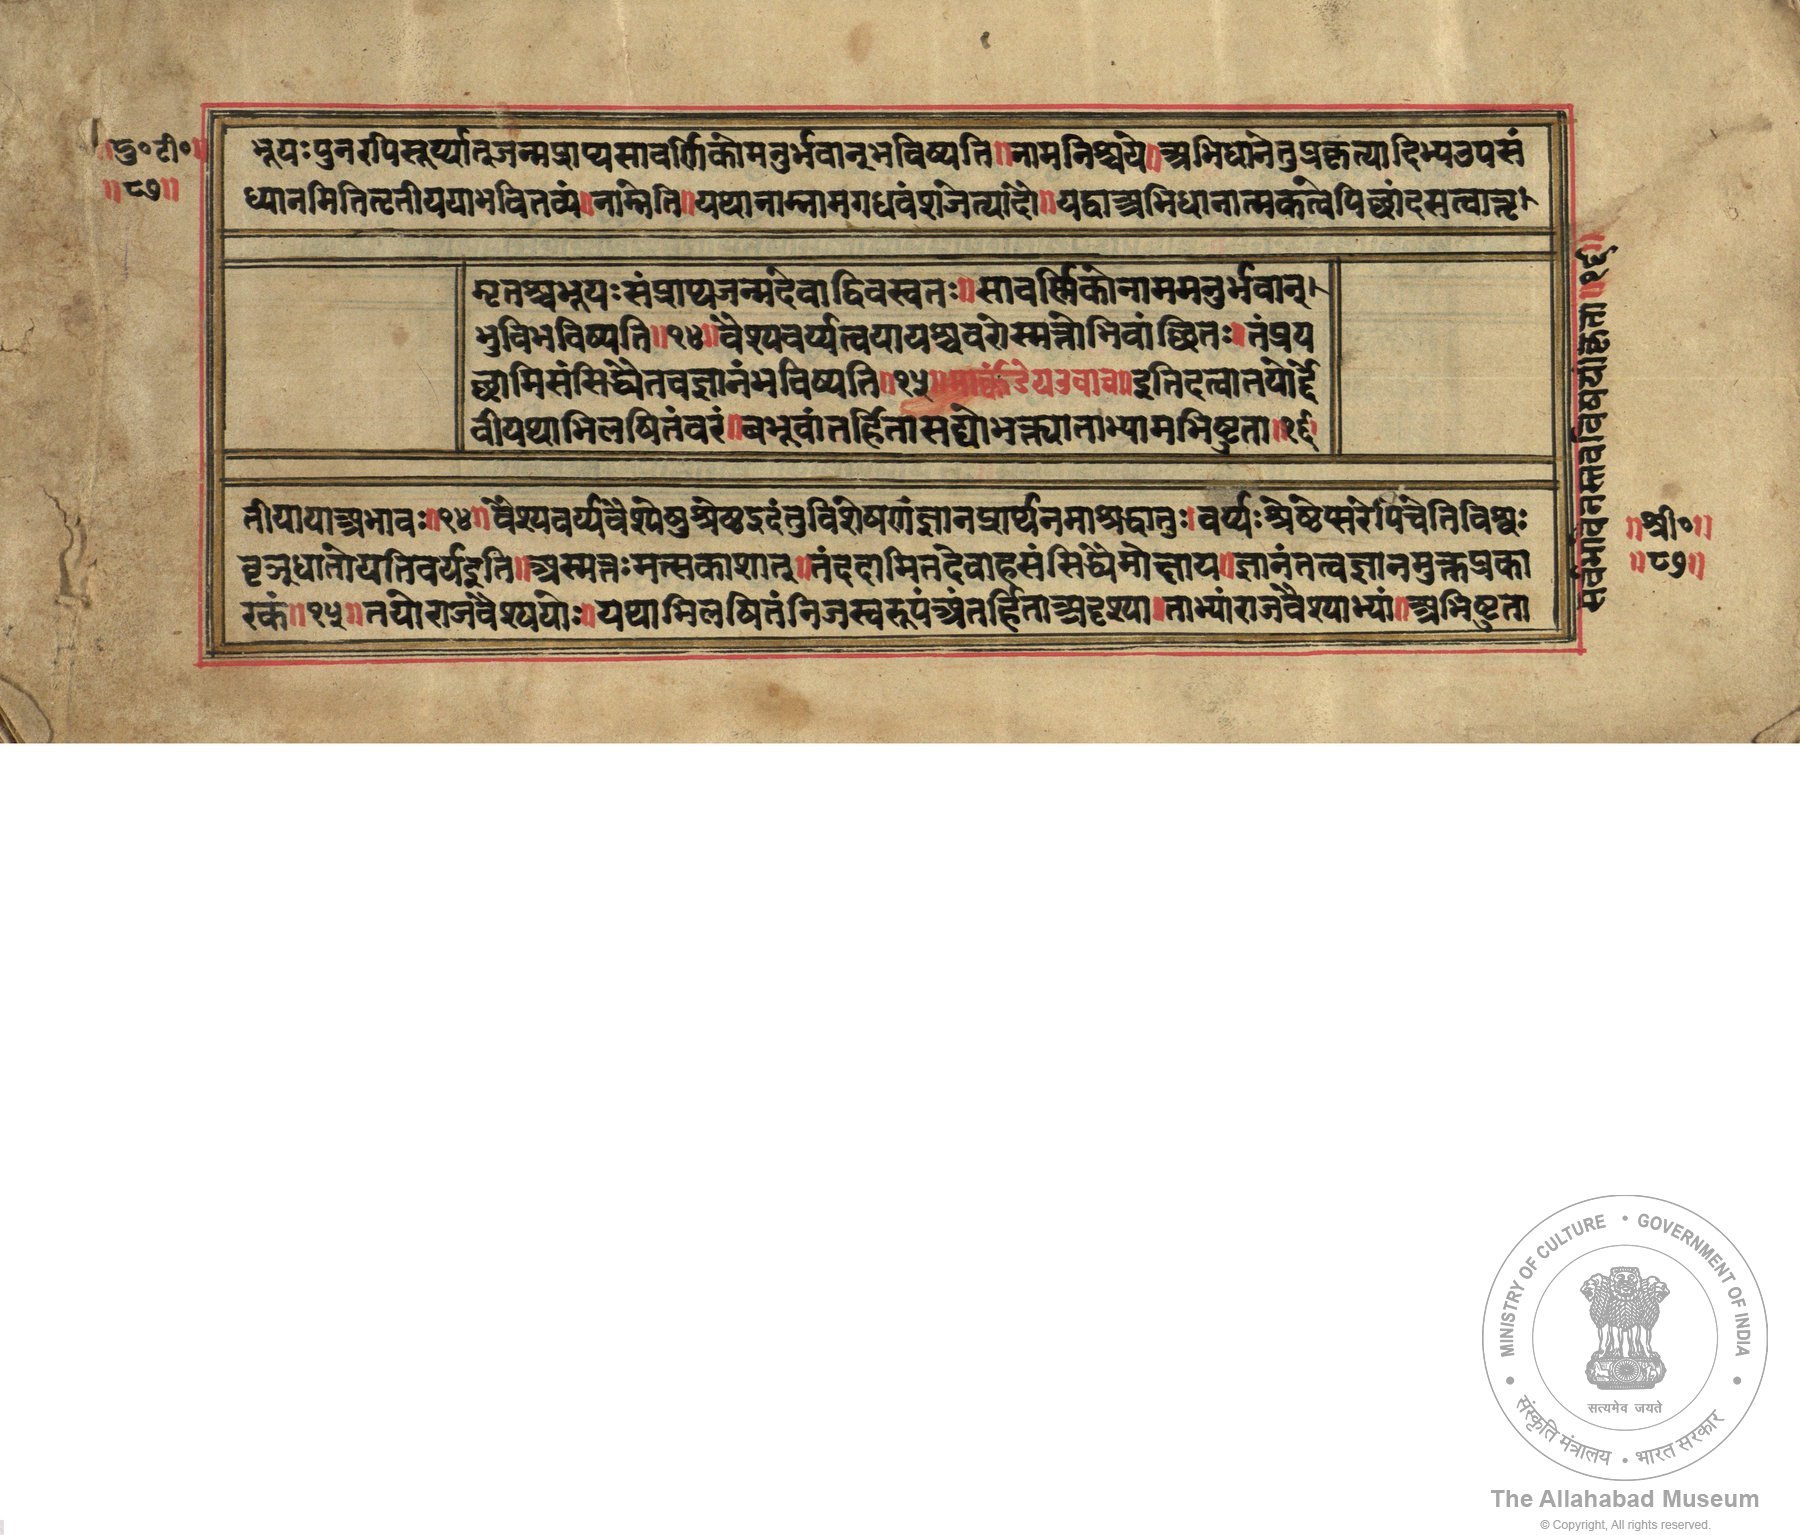 ॥दु॰टी॰॥
॥८७॥
भूयःपुनरपिसूर्य्यात्जन्मप्राप्यसावर्णिकोमनुर्भवान्भविष्यति॥नामनिश्चये॥अभिधानेतुप्रकृत्यादिभ्यउपसं
ध्यानमितितृतीययाभवितव्यं॥नाम्नेति॥यथानाम्नामगधवंशजेत्यादौ॥यद्वाअभिधानात्मकत्वेपिछांदसत्वात्तृ।
मृतश्चभूयःसंप्राप्यजन्मदेवाद्विवस्वतः॥सावर्णिकोनाममनुर्भवान्।
भुविभविष्यति॥१४॥वैश्यवर्य्यत्वयायश्चवरोस्मत्तोभिवांछितः॥तंप्रय
छामिसंसिद्ध्यैतवज्ञानंभविष्यति॥१५॥मार्कंडेयउवाच॥इतिदत्वातयोर्द्दे
वीयथाभिलषितंवरं॥बभूवांतर्हितासद्योभक्त्याताभ्यामभिष्टुता॥१६
तीयायाअभावः॥१४॥वैश्यवर्य्यवैश्येषुश्रेष्ठइदंतुविशेषणंज्ञानप्रार्थनमाश्रद्धातुः।वर्य्यःश्रेष्ठेप्सरेपिचेतिविश्वः
वृञ्धातोर्यतिवर्यइति॥अस्मत्तःमत्सकाशात्॥तंददामितदेवाहसंसिद्ध्यैमोक्षाय॥ज्ञानंतत्वज्ञानमुक्तप्रका
रकं॥१५॥तयोराजवैश्ययोः॥यथाभिलषितंनिजस्वरूपंअंतर्हिताअदृश्या॥ताभ्यांराजवैश्याभ्यां॥अभिष्टुता
॥१६॥
॥श्री॰॥
॥८७॥
MINISTRY OF CULTURE • GOVERNMENT OF INDIA
संस्कृति मंत्रालय • भारत सरकार
सत्यमेव जयते
The Allahabad Museum
© Copyright, All rights reserved.